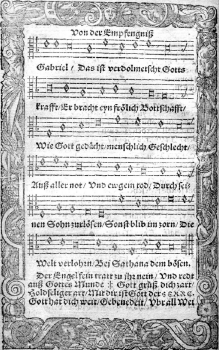 Von der Empfengniß
Gabriel / Das ist verdolmetscht Gotts
krafft / Er bracht eyn frölich Bottschafft /
Wie Gott gedächt / menschlich Geschlecht /
Auß aller not / Vnd ewgem tod / Durch sei⸗
nen Sohn zurlösen / Sonst blib im zorn / Die
Welt verlohrn / Bei Sathana dem bösen.
Der Engel sein tratt zu ihr nein / Vnd redt
auß Gottes Munde Gott grüß dich zart /
Holdseliger art / Mit dir ist Gott der HERRE.
Gott hat dich weit / Gebenedeit / Vbr all Wei